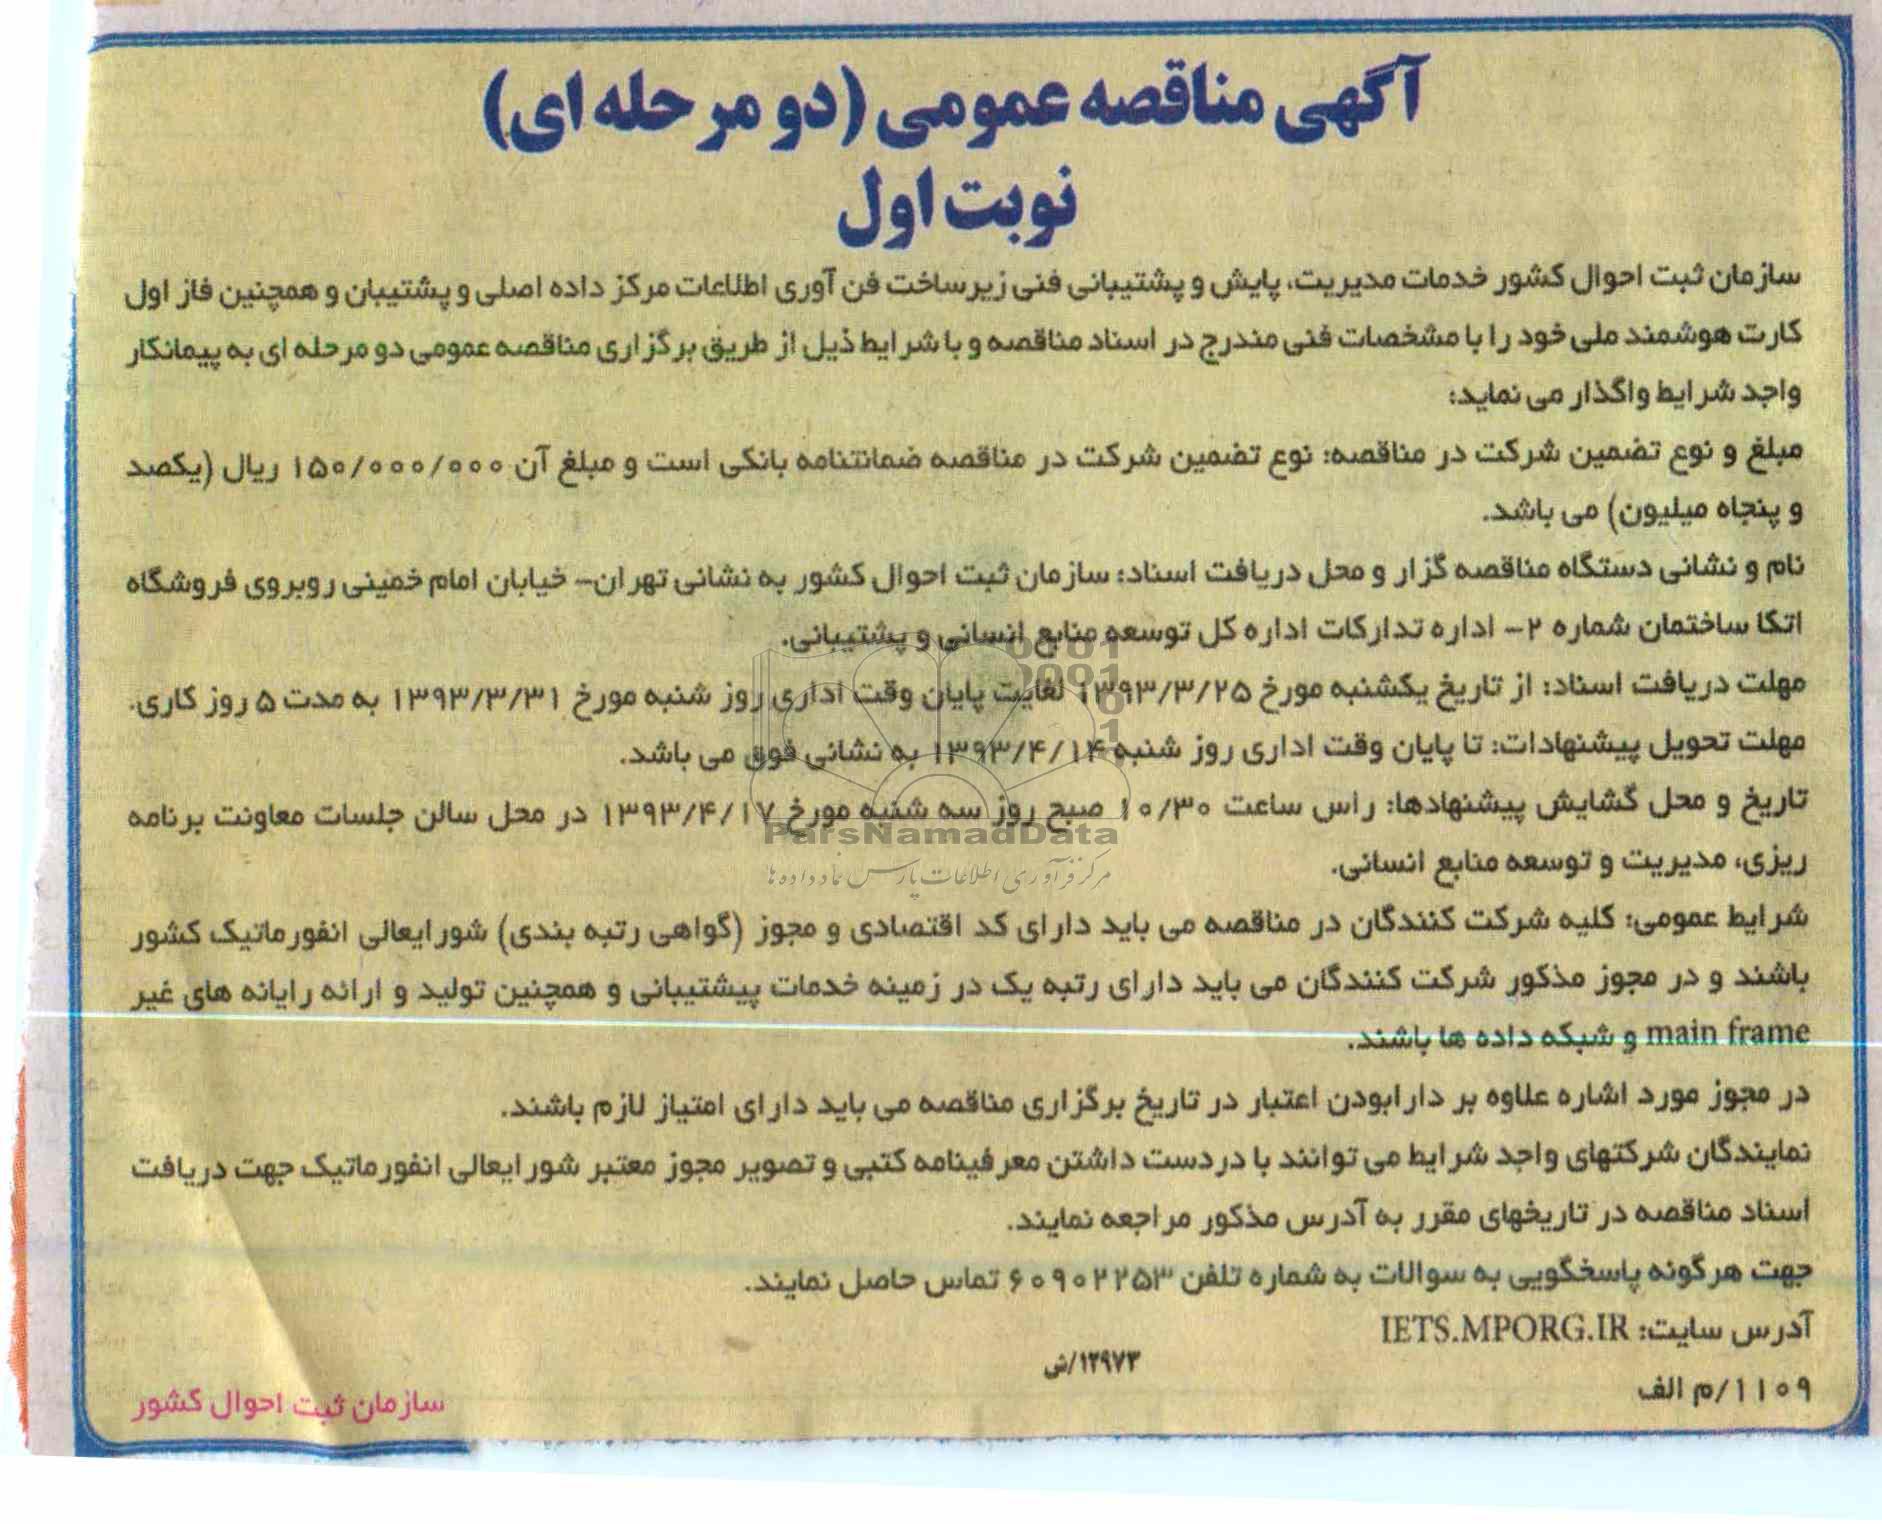 آگهی مناقصه عمومی (دو مرحله ای)
نوبت اول
سازمان ثبت احوال کشور خدمات مدیریت، پایش و پشتیبانی فنی زیرساخت فن آوری اطلاعات مرکز داده اصلی و پشتیبان و همچنین فاز اول
کارت هوشمند ملی خود را با مشخصات فنی مندرج در اسناد مناقصه و با شرایط ذیل از طریق برگزاری مناقصه عمومی دو مرحله ای به پیمانکار
واجد شرایط واگذار می نماید:
مبلغ و نوع تضمین شرکت در مناقصه: نوع تضمین شرکت در مناقصه ضمانتنامه بانکی است و مبلغ آن ۱۵۰/۰۰۰/۰۰۰ ریال (یکصد
و پنجاه میلیون) می باشد.
نام و نشانی دستگاه مناقصه گزار و محل دریافت اسناد: سازمان ثبت احوال کشور به نشانی تهران- خیابان امام خمینی روبروی فروشگاه
اتکا ساختمان شماره ۲- اداره تدارکات اداره کل توسعه منابع انسانی و پشتیبانی.
مهلت دریافت اسناد: از تاریخ یکشنبه مورخ ۱۳۹۳/۳/۲۵ لغایت پایان وقت اداری روز شنبه مورخ ۱۳۹۳/۳/۳۱ به مدت ۵ روز کاری.
مهلت تحویل پیشنهادات: تا پایان وقت اداری روز شنبه ۱۳۹۳/۴/۱۴ به نشانی فوق می باشد.
تاریخ و محل گشایش پیشنهادها: راس ساعت ۱۰/۳۰ صبح روز سه شنبه مورخ ۱۳۹۳/۴/۱۷ در محل سالن جلسات معاونت برنامه
ParsNamadData
ریزی، مدیریت و توسعه منابع انسانی.
مرکز فرآوری اطلاعات پارس نماد داده ها
شرایط عمومی: کلیه شرکت کنندگان در مناقصه می باید دارای کد اقتصادی و مجوز (گواهی رتبه بندی) شورایعالی انفورماتیک کشور
باشند و در مجوز مذکور شرکت کنندگان می باید دارای رتبه یک در زمینه خدمات پیشتیبانی و همچنین تولید و ارائه رایانه های غیر
main frame و شبکه داده ها باشند.
در مجوز مورد اشاره علاوه بر دارابودن اعتبار در تاریخ برگزاری مناقصه می باید دارای امتیاز لازم باشند.
نمایندگان شرکتهای واجد شرایط می توانند با دردست داشتن معرفینامه کتبی و تصویر مجوز معتبر شورایعالی انفورماتیک جهت دریافت
اسناد مناقصه در تاریخهای مقرر به آدرس مذکور مراجعه نمایند.
جهت هرگونه پاسخگویی به سوالات به شماره تلفن ۶۰۹۰۲۲۵۳ تماس حاصل نمایند.
آدرس سایت: IETS.MPORG.IR
۱۲۹۷۳/ش
۱۱۰۹/م الف
سازمان ثبت احوال کشور